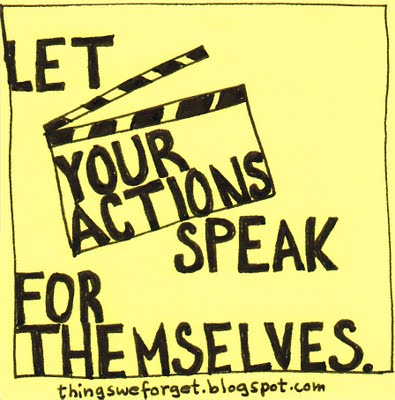 LET
YOUR
ACTIONS
SPEAK
FOR
THEMSELVES.
thingsweforget.blogspot.com